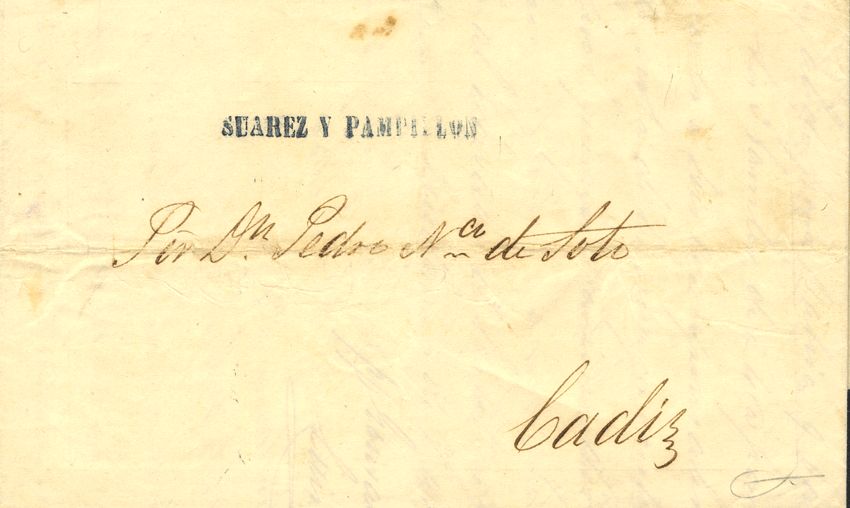 SUAREZ Y PAMPILLON
Sōr Dn. Pedro Nca de Soto
Cadiz